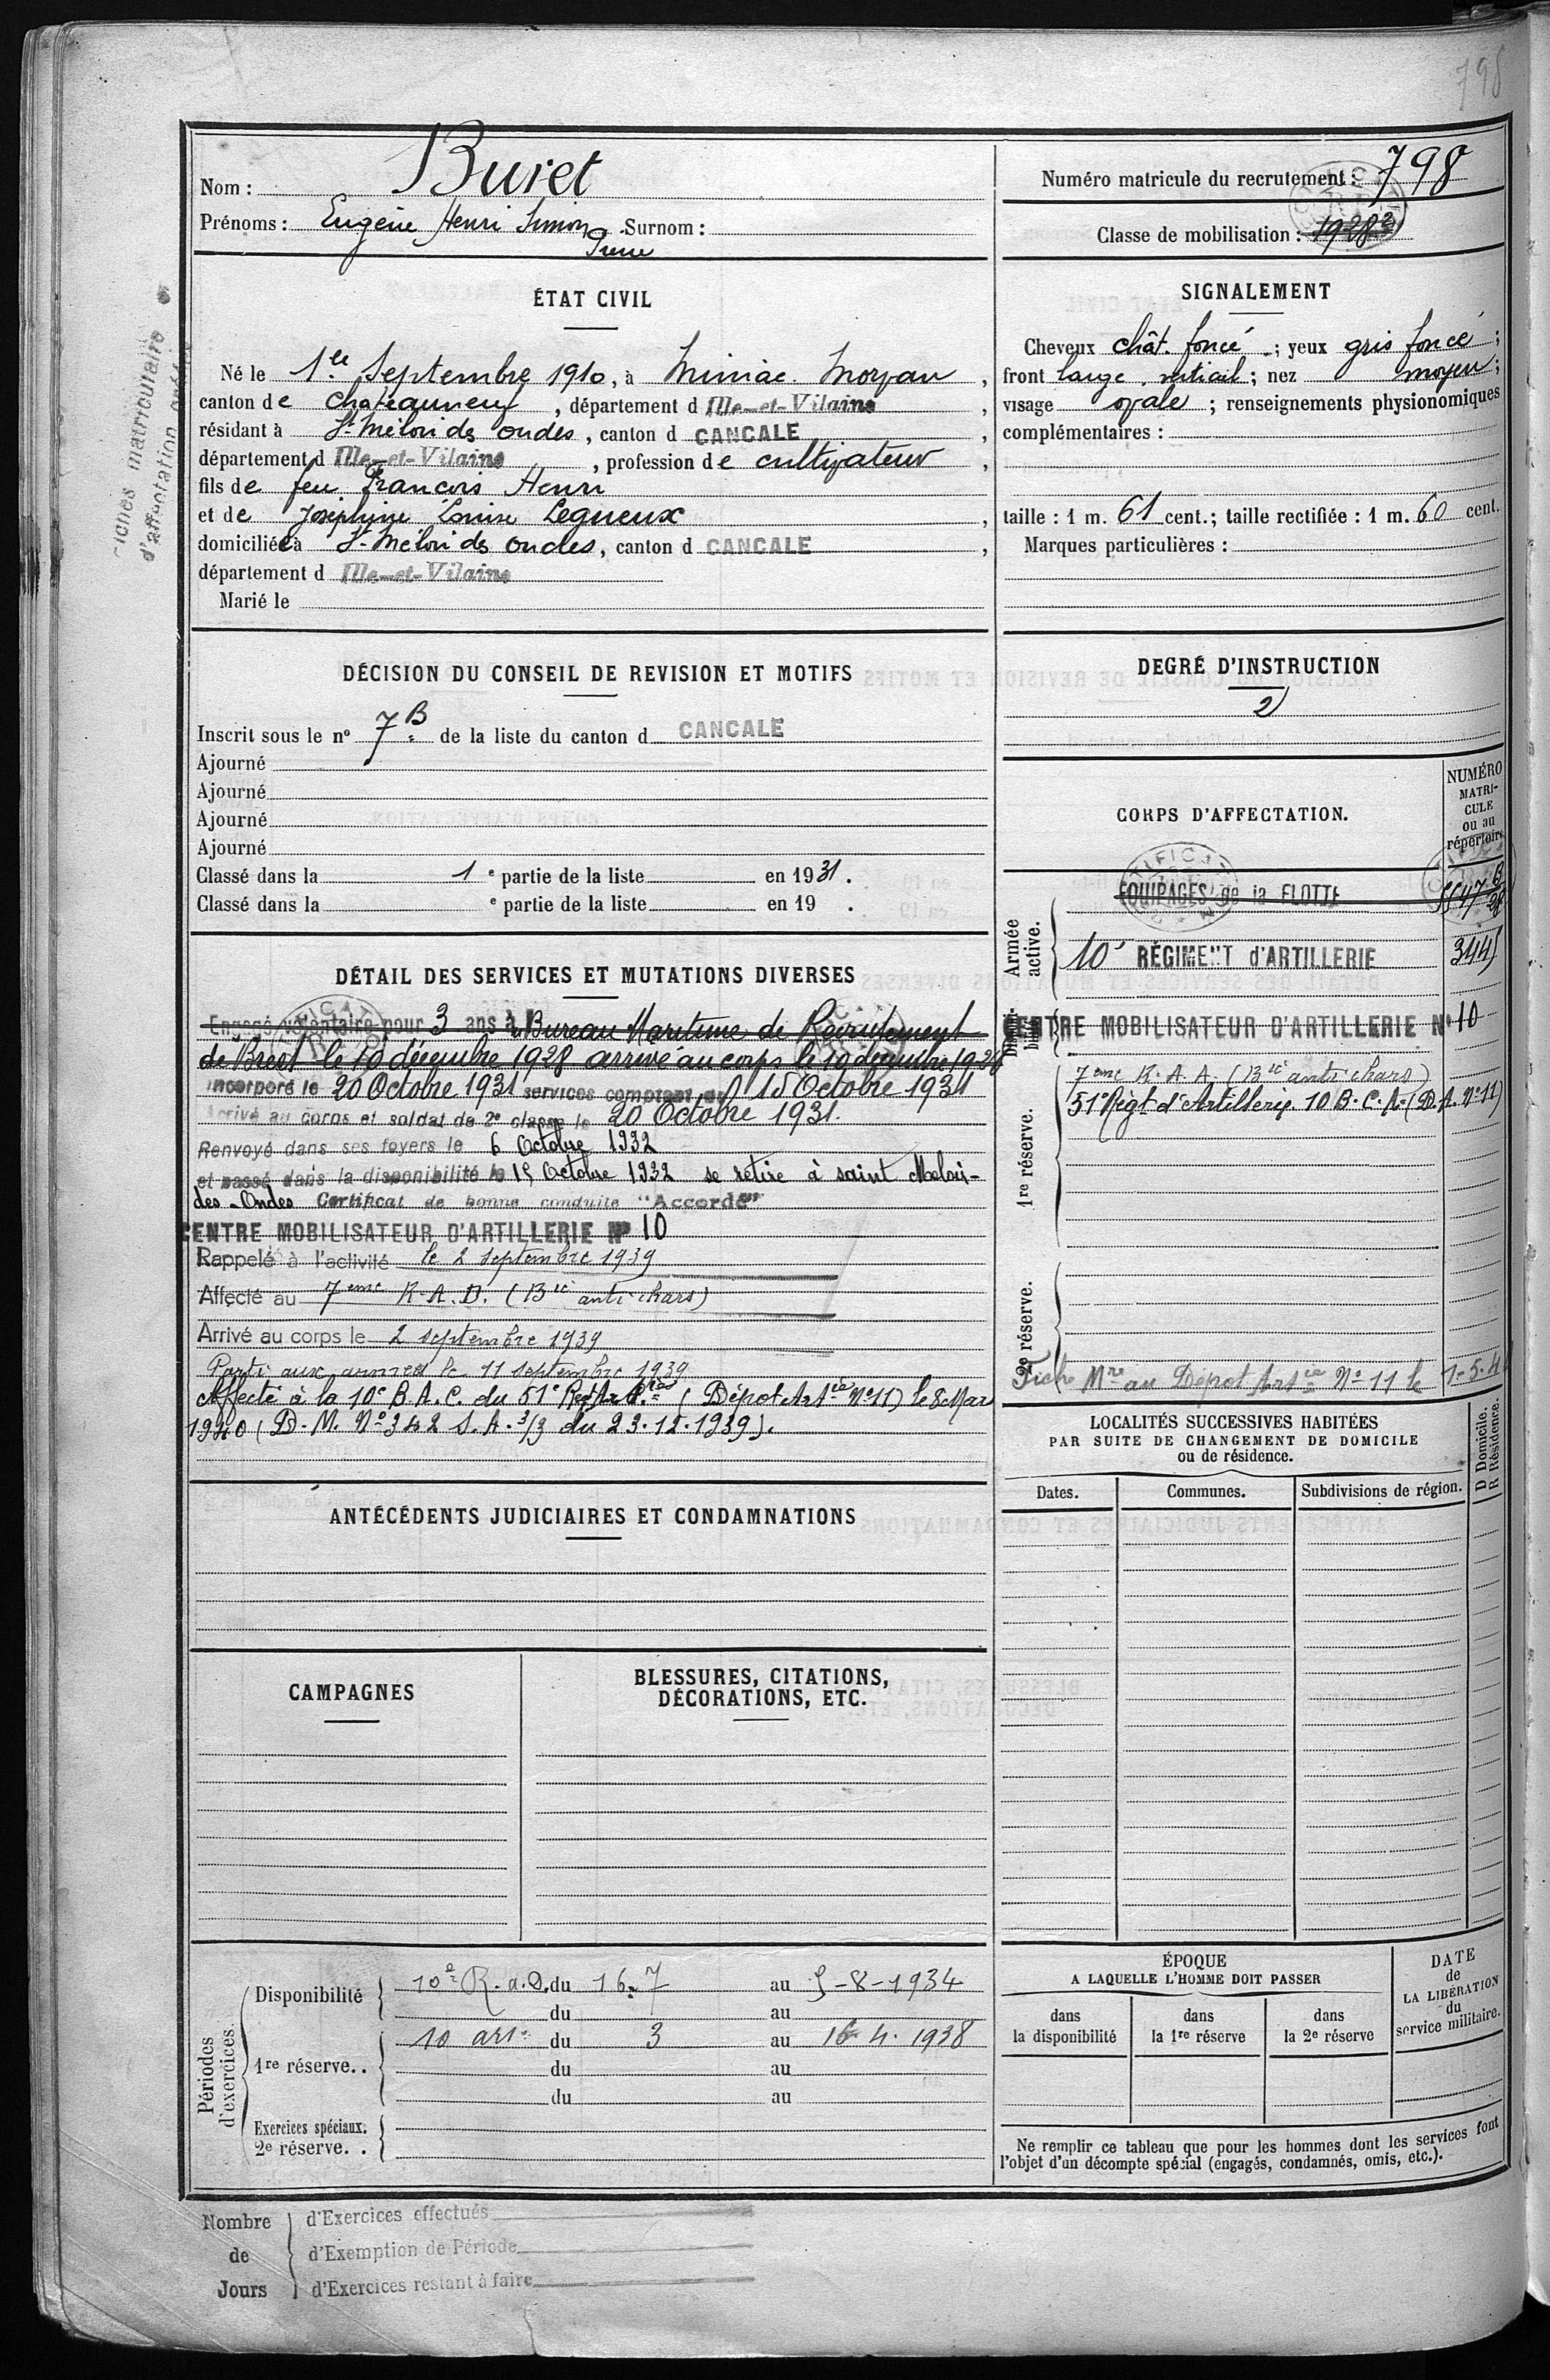 798
Nom : Buret
Prénoms : Eugène Henri Simon Surnom :
Pierre
Numéro matricule du recrutement : 798
Classe de mobilisation :
ÉTAT CIVIL
Né le 1er Septembre 1910, à Miniac-Morvan,
canton de Chateauneuf, département d Ille-et-Vilaine,
résidant à St Méloir des ondes, canton d CANCALE,
département d Ille-et-Vilaine, profession de cultivateur,
fils de feu François Henri
et de Joséphine Louise Legueux,
domiciliée à St-Meloir des ondes, canton d CANCALE,
département d Ille-et-Vilaine
Marié le
SIGNALEMENT
Cheveux chât. foncé ; yeux gris foncé ;
front large, vertical ; nez moyen ;
visage ovale ; renseignements physionomiques
complémentaires :
taille : 1 m. 61 cent. ; taille rectifiée : 1 m. 60 cent.
Marques particulières :
matriculaire
d'affectation
DÉCISION DU CONSEIL DE REVISION ET MOTIFS
Inscrit sous le nº 7 B de la liste du canton d CANCALE
Ajourné
Ajourné
Ajourné
Ajourné
Classé dans la 1 e partie de la liste en 1931.
Classé dans la e partie de la liste en 19 .
DEGRÉ D'INSTRUCTION
2
CORPS D'AFFECTATION.
NUMÉRO
MATRI-
CULE
ou au
répertoire
Armée
active.
EQUIPAGES de la FLOTTE
10e RÉGIMENT d'ARTILLERIE 3445
CENTRE MOBILISATEUR D'ARTILLERIE Nº 10
1re réserve.
7eme R.A.A. (Bie anti chars)
51e Régt d'Artillerie 10 B.C.A. (D.A. Nº 11)
2e réserve.
Fiche Mre au Dépot Artie Nº 11 le 1-5-4
DÉTAIL DES SERVICES ET MUTATIONS DIVERSES
Engagé volontaire pour 3 ans au Bureau Maritime de Recrutement
de Brest le 10 décembre 1928 arrivé au corps le 10 décembre 1928
Incorporé le 20 Octobre 1931 services comptant du 15 Octobre 1931
Arrivé au corps et soldat de 2e classe le 20 Octobre 1931.
Renvoyé dans ses foyers le 6 Octobre 1932
et passé dans la disponibilité le 15 Octobre 1932 se retire à saint Meloir-
des-Ondes Certificat de bonne conduite "Accordé"
CENTRE MOBILISATEUR D'ARTILLERIE Nº 10
Rappelé à l'activité le 2 septembre 1939
Affecté au 7eme R.A.D. (Bie anti chars)
Arrivé au corps le 2 septembre 1939
Parti aux armées le 11 septembre 1939
Affecté à la 10e B.A.C. du 51e Régt (Dépot Artie Nº 11) le 8 Mars
1940 (D.M. Nº 342 S.A. 3/3 du 23.12.1939).
ANTÉCÉDENTS JUDICIAIRES ET CONDAMNATIONS
LOCALITÉS SUCCESSIVES HABITÉES
PAR SUITE DE CHANGEMENT DE DOMICILE
ou de résidence.
D Domicile.
R Résidence.
Dates. Communes. Subdivisions de région.
CAMPAGNES
BLESSURES, CITATIONS,
DÉCORATIONS, ETC.
Périodes
d'exercices.
Disponibilité 10e R.a.D. du 16-7 au 5-8-1934
du au
1re réserve.. 10 artie du 3 au 16.4.1938
du au
du au
Exercices spéciaux.
2e réserve..
ÉPOQUE
A LAQUELLE L'HOMME DOIT PASSER
dans
la disponibilité
dans
la 1re réserve
dans
la 2e réserve
DATE
de
LA LIBÉRATION
du
service militaire.
Ne remplir ce tableau que pour les hommes dont les services font
l'objet d'un décompte spécial (engagés, condamnés, omis, etc.).
Nombre
de
Jours
d'Exercices effectués
d'Exemption de Période
d'Exercices restant à faire